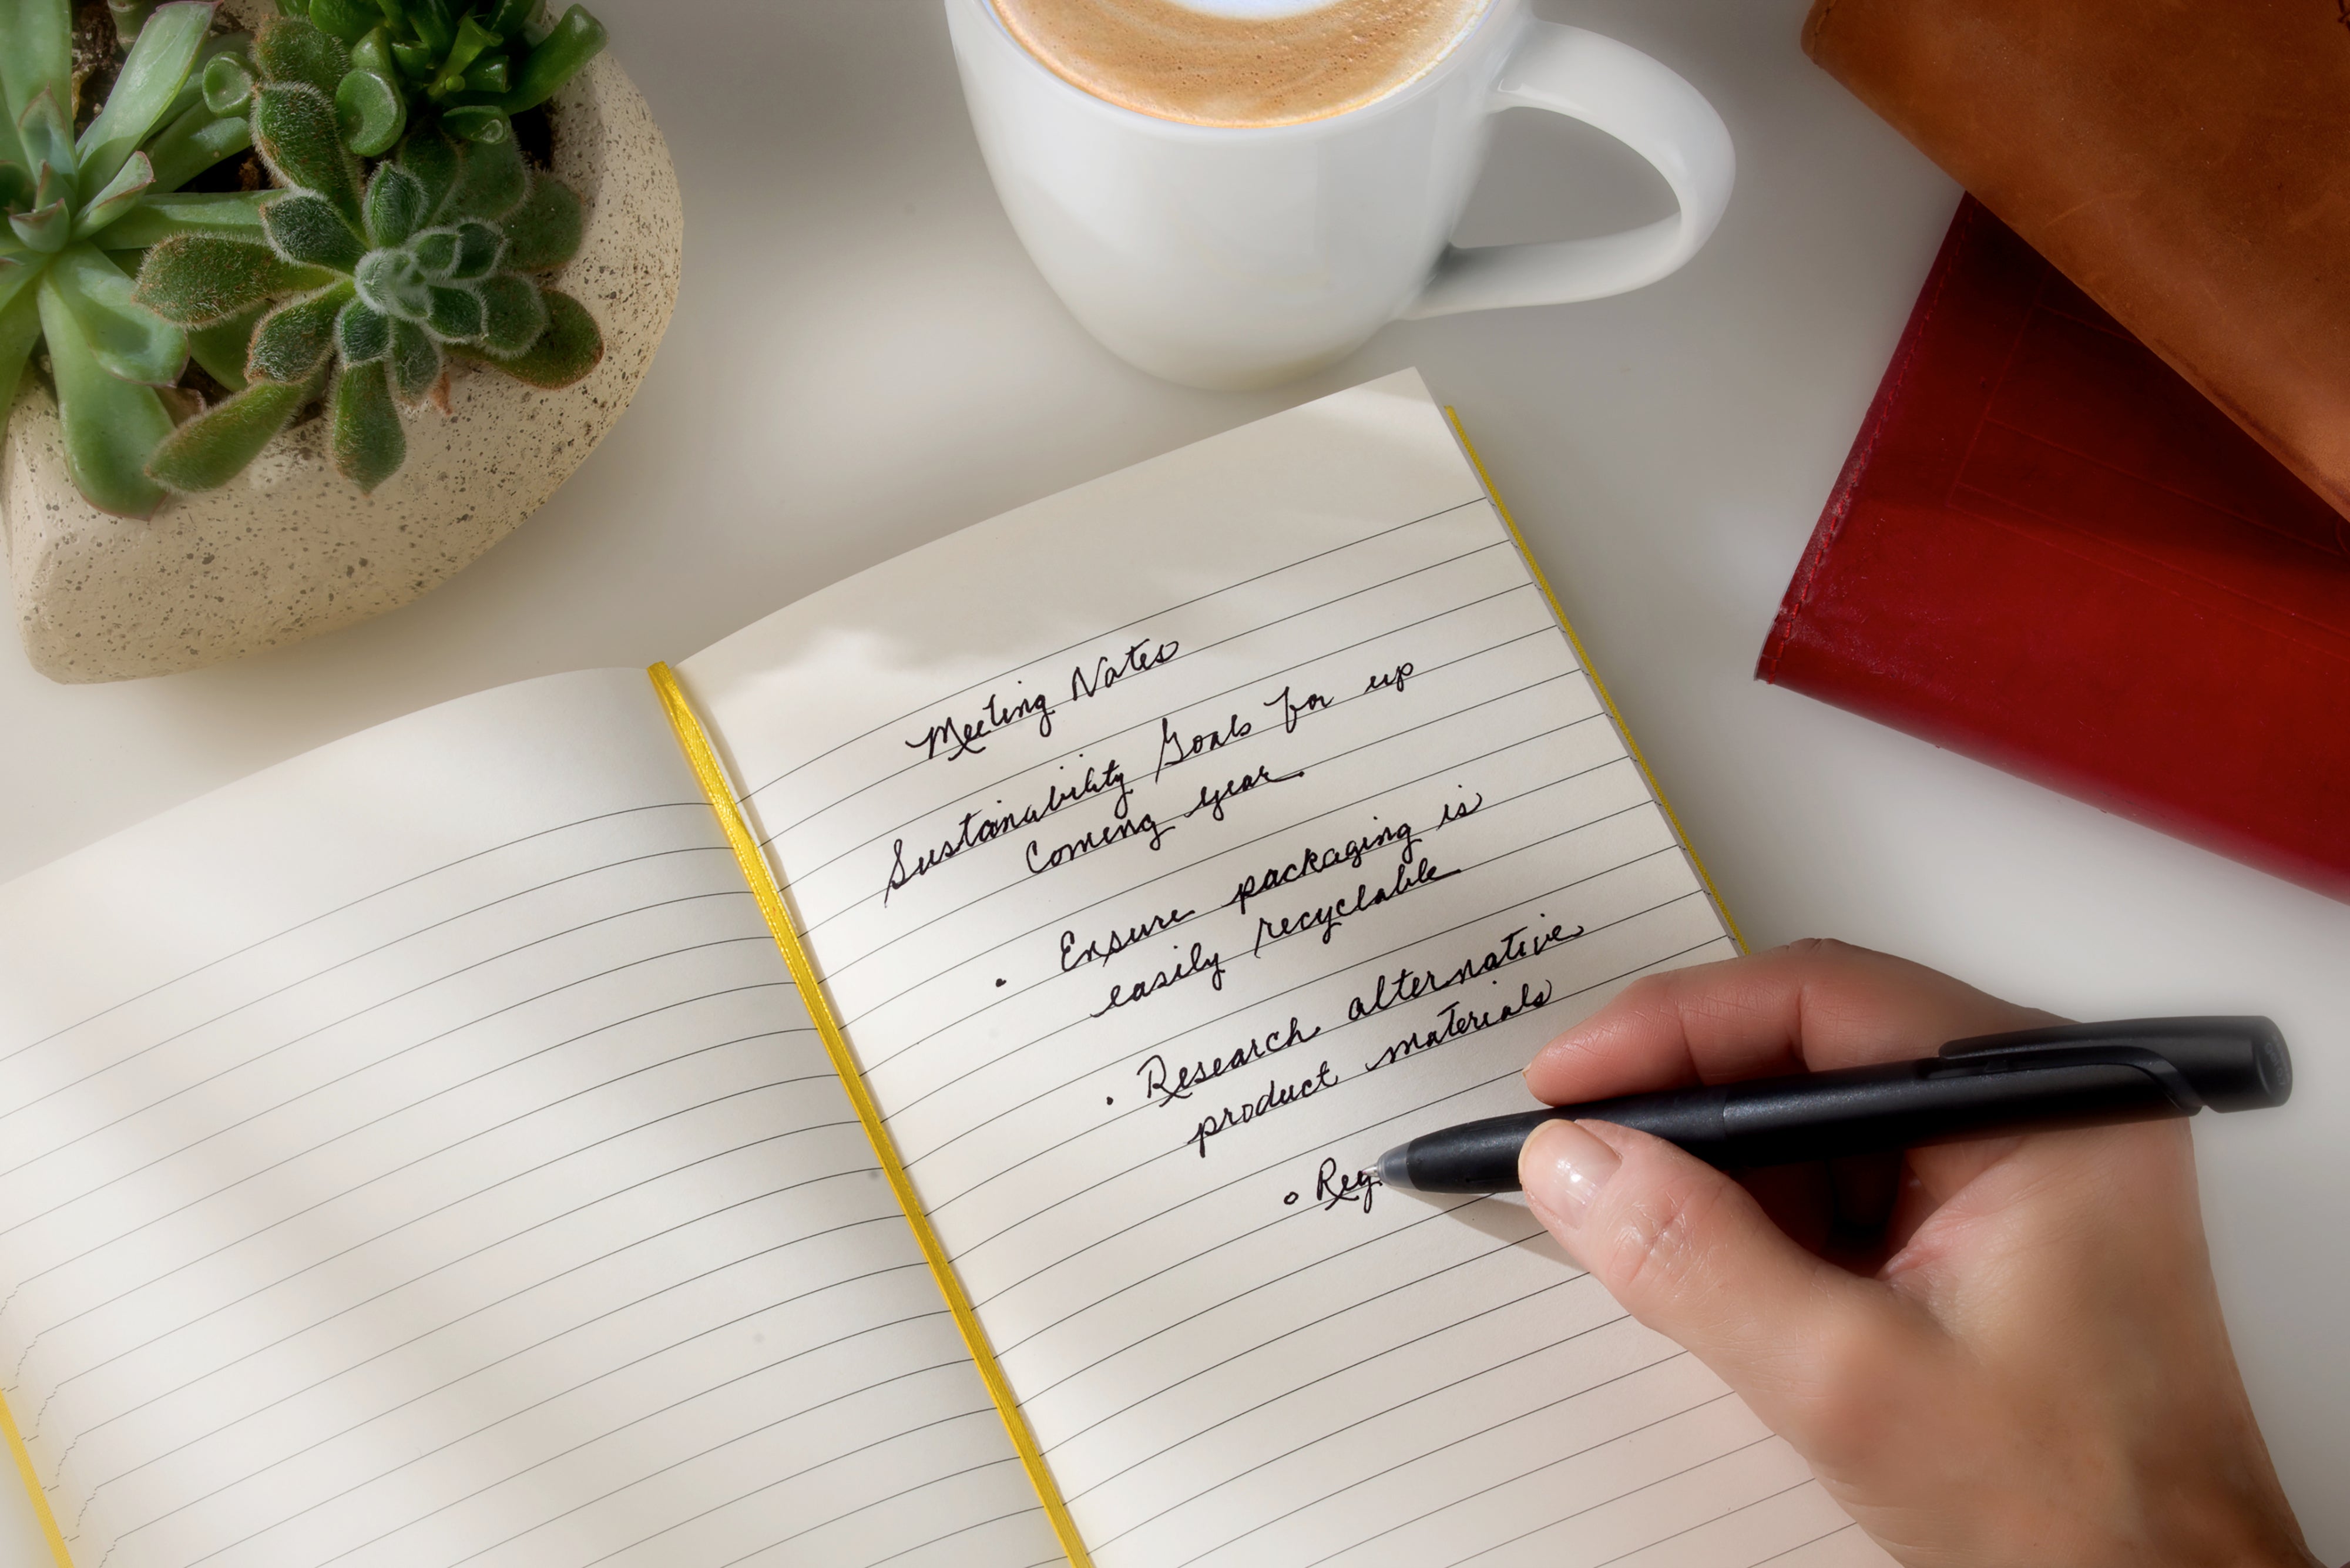 Meeting Notes
Sustainability Goals for up
Coming year.
• Ensure packaging is
easily recyclable
• Research alternative
product materials
◦ Rey